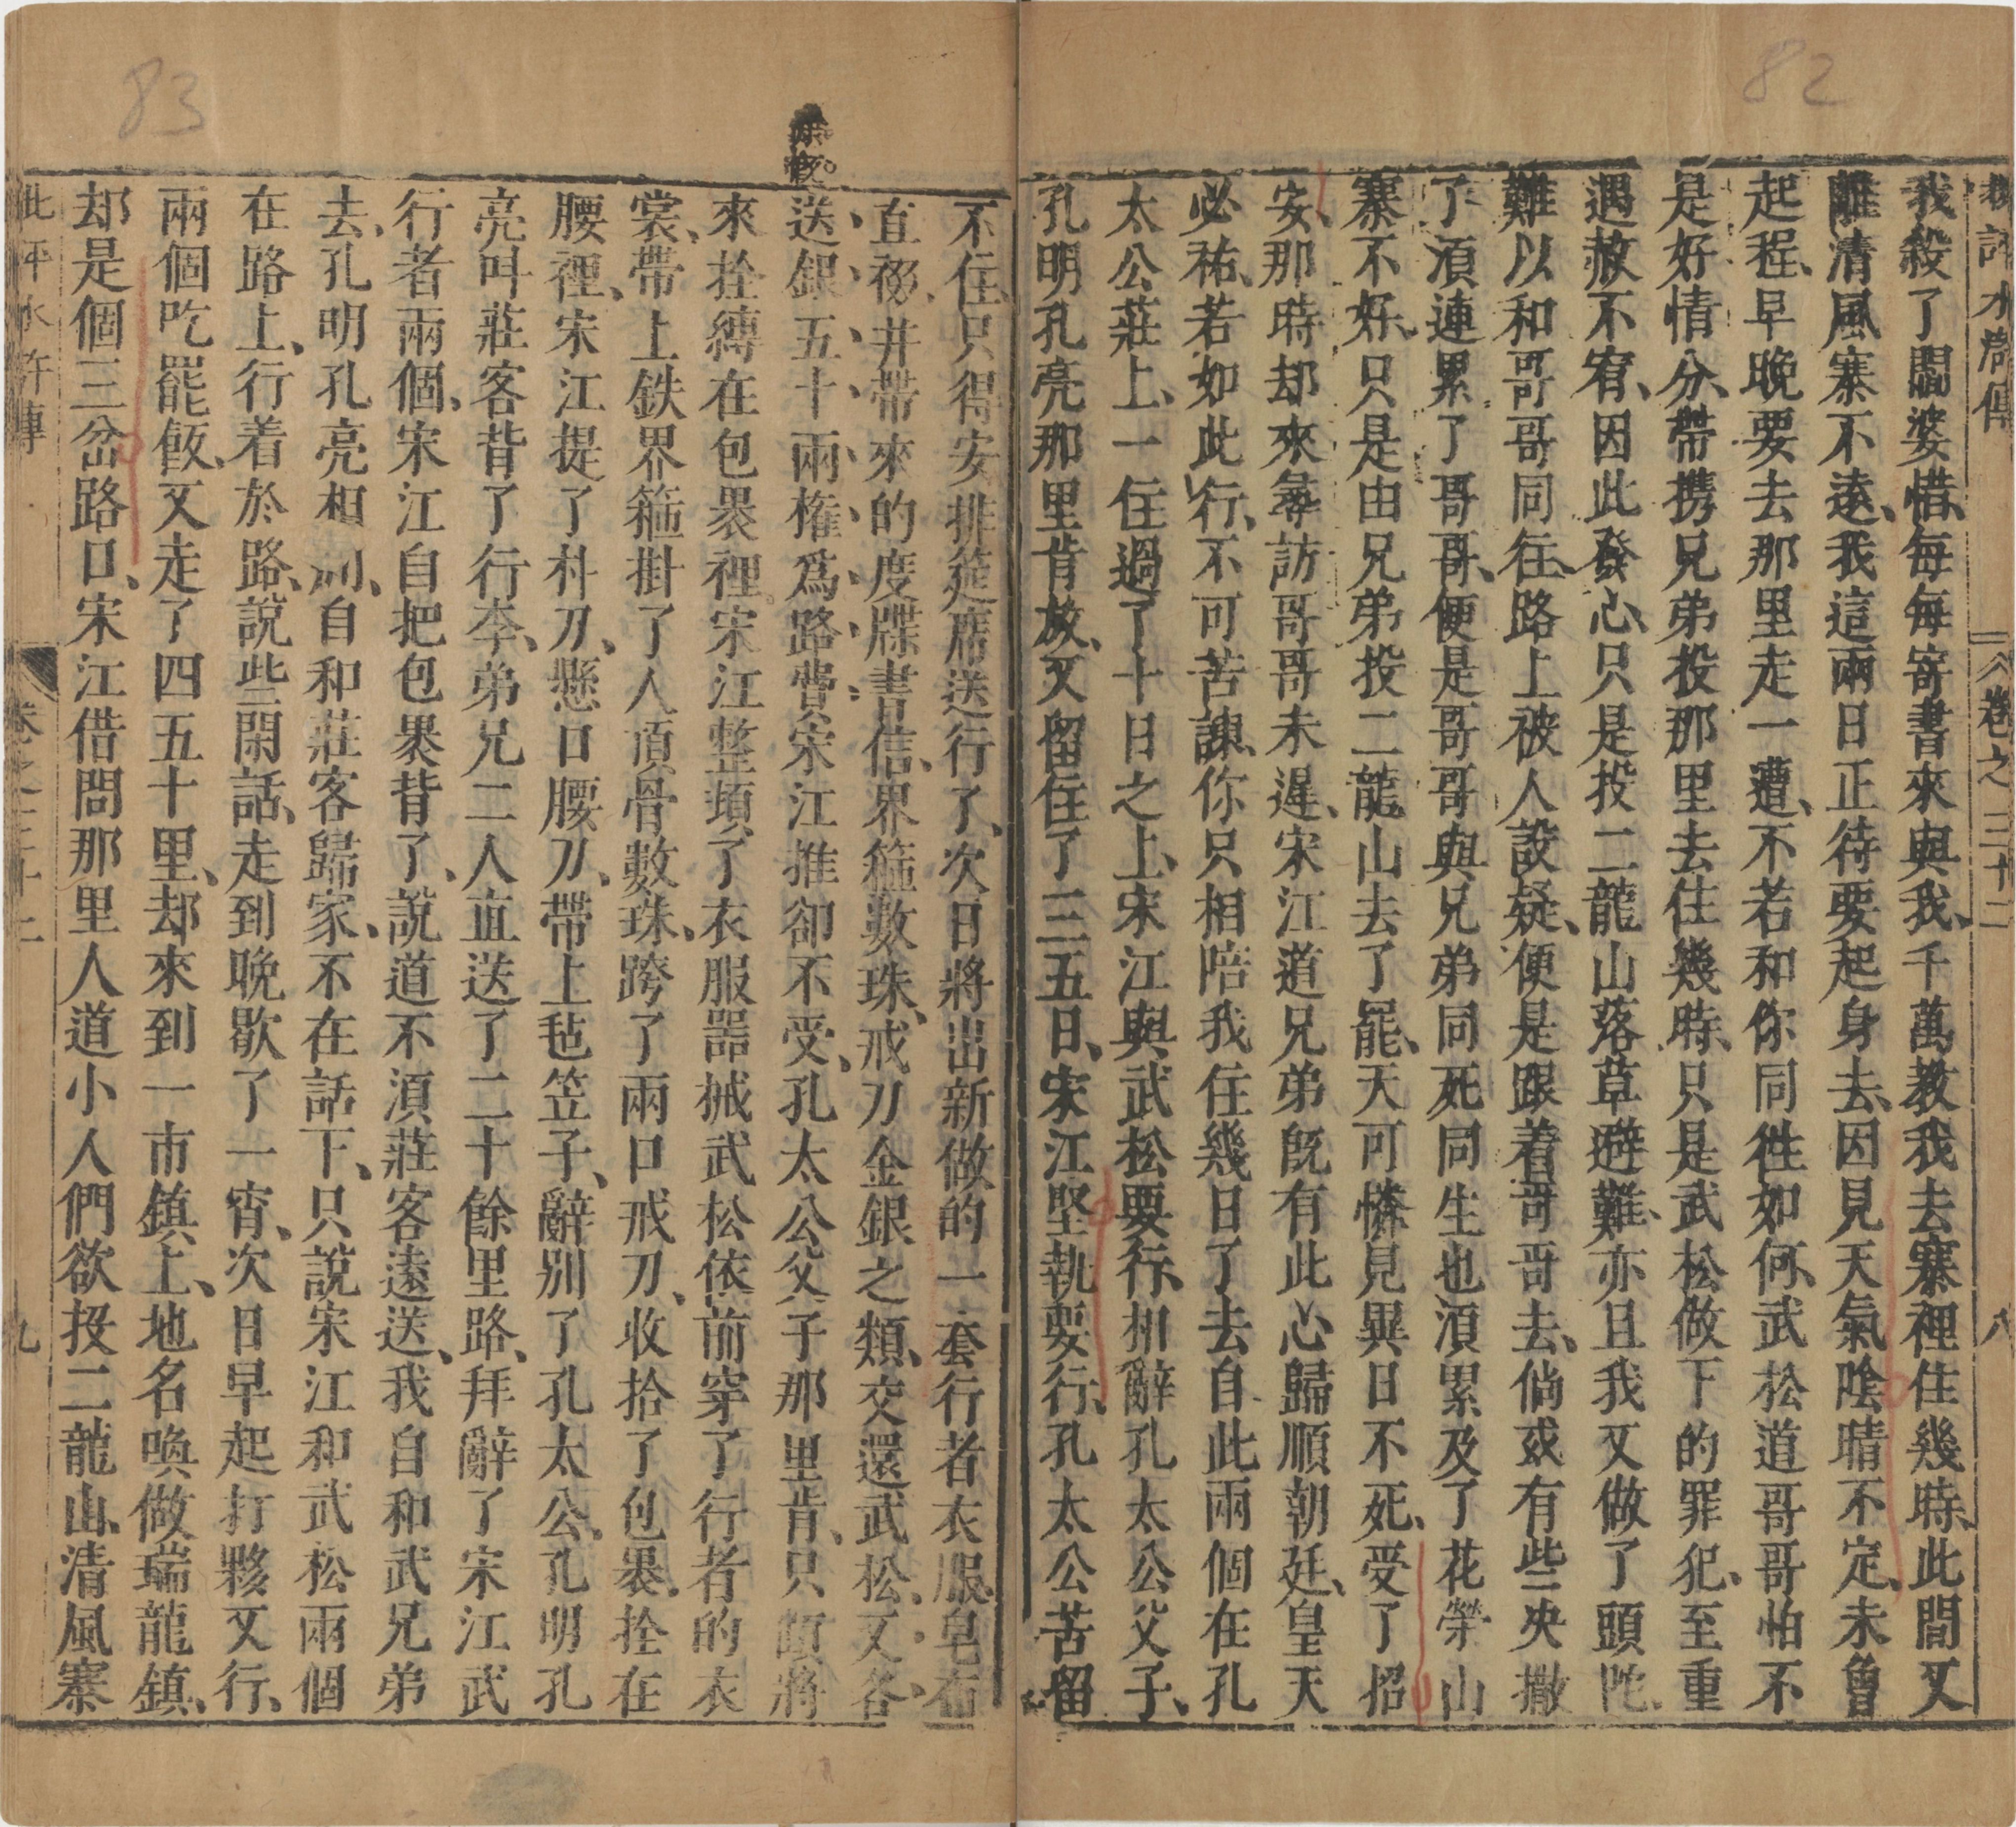 82
批評水滸傳
卷之三十二
八
我殺了閻婆惜、每每寄書來與我、千萬教我去寨裡住幾時、此間又
離清風寨不遠、我這兩日正待要起身去、因見天氣陰晴不定、未曾
起程、早晚要去那里走一遭、不若和你同徃如何、武松道哥哥怕不
是好情分、帶携兄弟投那里去住幾時、只是武松做下的罪犯、至重
遇赦不宥、因此發心、只是投二龍山落草避難、亦且我又做了頭陀、
難以和哥哥同往、路上被人設疑、便是跟着哥哥去、倘或有些决撒
了湏連累了哥哥、便是哥哥與兄弟同死同生也湏累及了花榮山
寨不好、只是由兄弟投二龍山去了罷、天可憐見異日不死、受了招
安、那時却來尋訪哥哥未遲、宋江道兄弟既有此心歸順朝廷、皇天
必祐、若如此行、不可苦諫、你只相陪我住幾日了去自此兩個在孔
太公莊上、一住過了十日之上、宋江與武松要行、相辭孔太公父子、
孔明孔亮那里肯放、又留住了三五日、宋江堅執要行、孔太公苦留
83
不住、只得安排筵席送行了、次日將出新做的一套行者衣服、皂布
直裰、并帶來的度牒書信、界箍數珠、戒刀金銀之類、交還武松、又各
送銀五十兩、權爲路費、宋江推卻不受、孔太公父子那里肯、只顧將
來拴縛在包裹裡、宋江整頓了衣服器械武松依前穿了行者的衣
裳、帶上鉄界箍掛了人頂骨數珠、跨了兩口戒刀、收拾了包裹、拴在
腰裡、宋江提了朴刀、懸口腰刀、帶上毡笠子、辭別了孔太公、孔明孔
亮叫莊客背了行李、弟兄二人直送了二十餘里路、拜辭了宋江武
行者兩個、宋江自把包裹背了、說道不湏莊客遠送、我自和武兄弟
去、孔明孔亮相別、自和莊客歸家、不在話下、只說宋江和武松兩個
在路上、行着於路、說些閑話、走到晚歇了一宵、次日早起打夥又行、
兩個吃罷飯、又走了四五十里、却來到一市鎮上、地名喚做瑞龍鎮、
却是個三岔路口、宋江借問那里人道小人們欲投二龍山、清風寨
卷之三十二
九